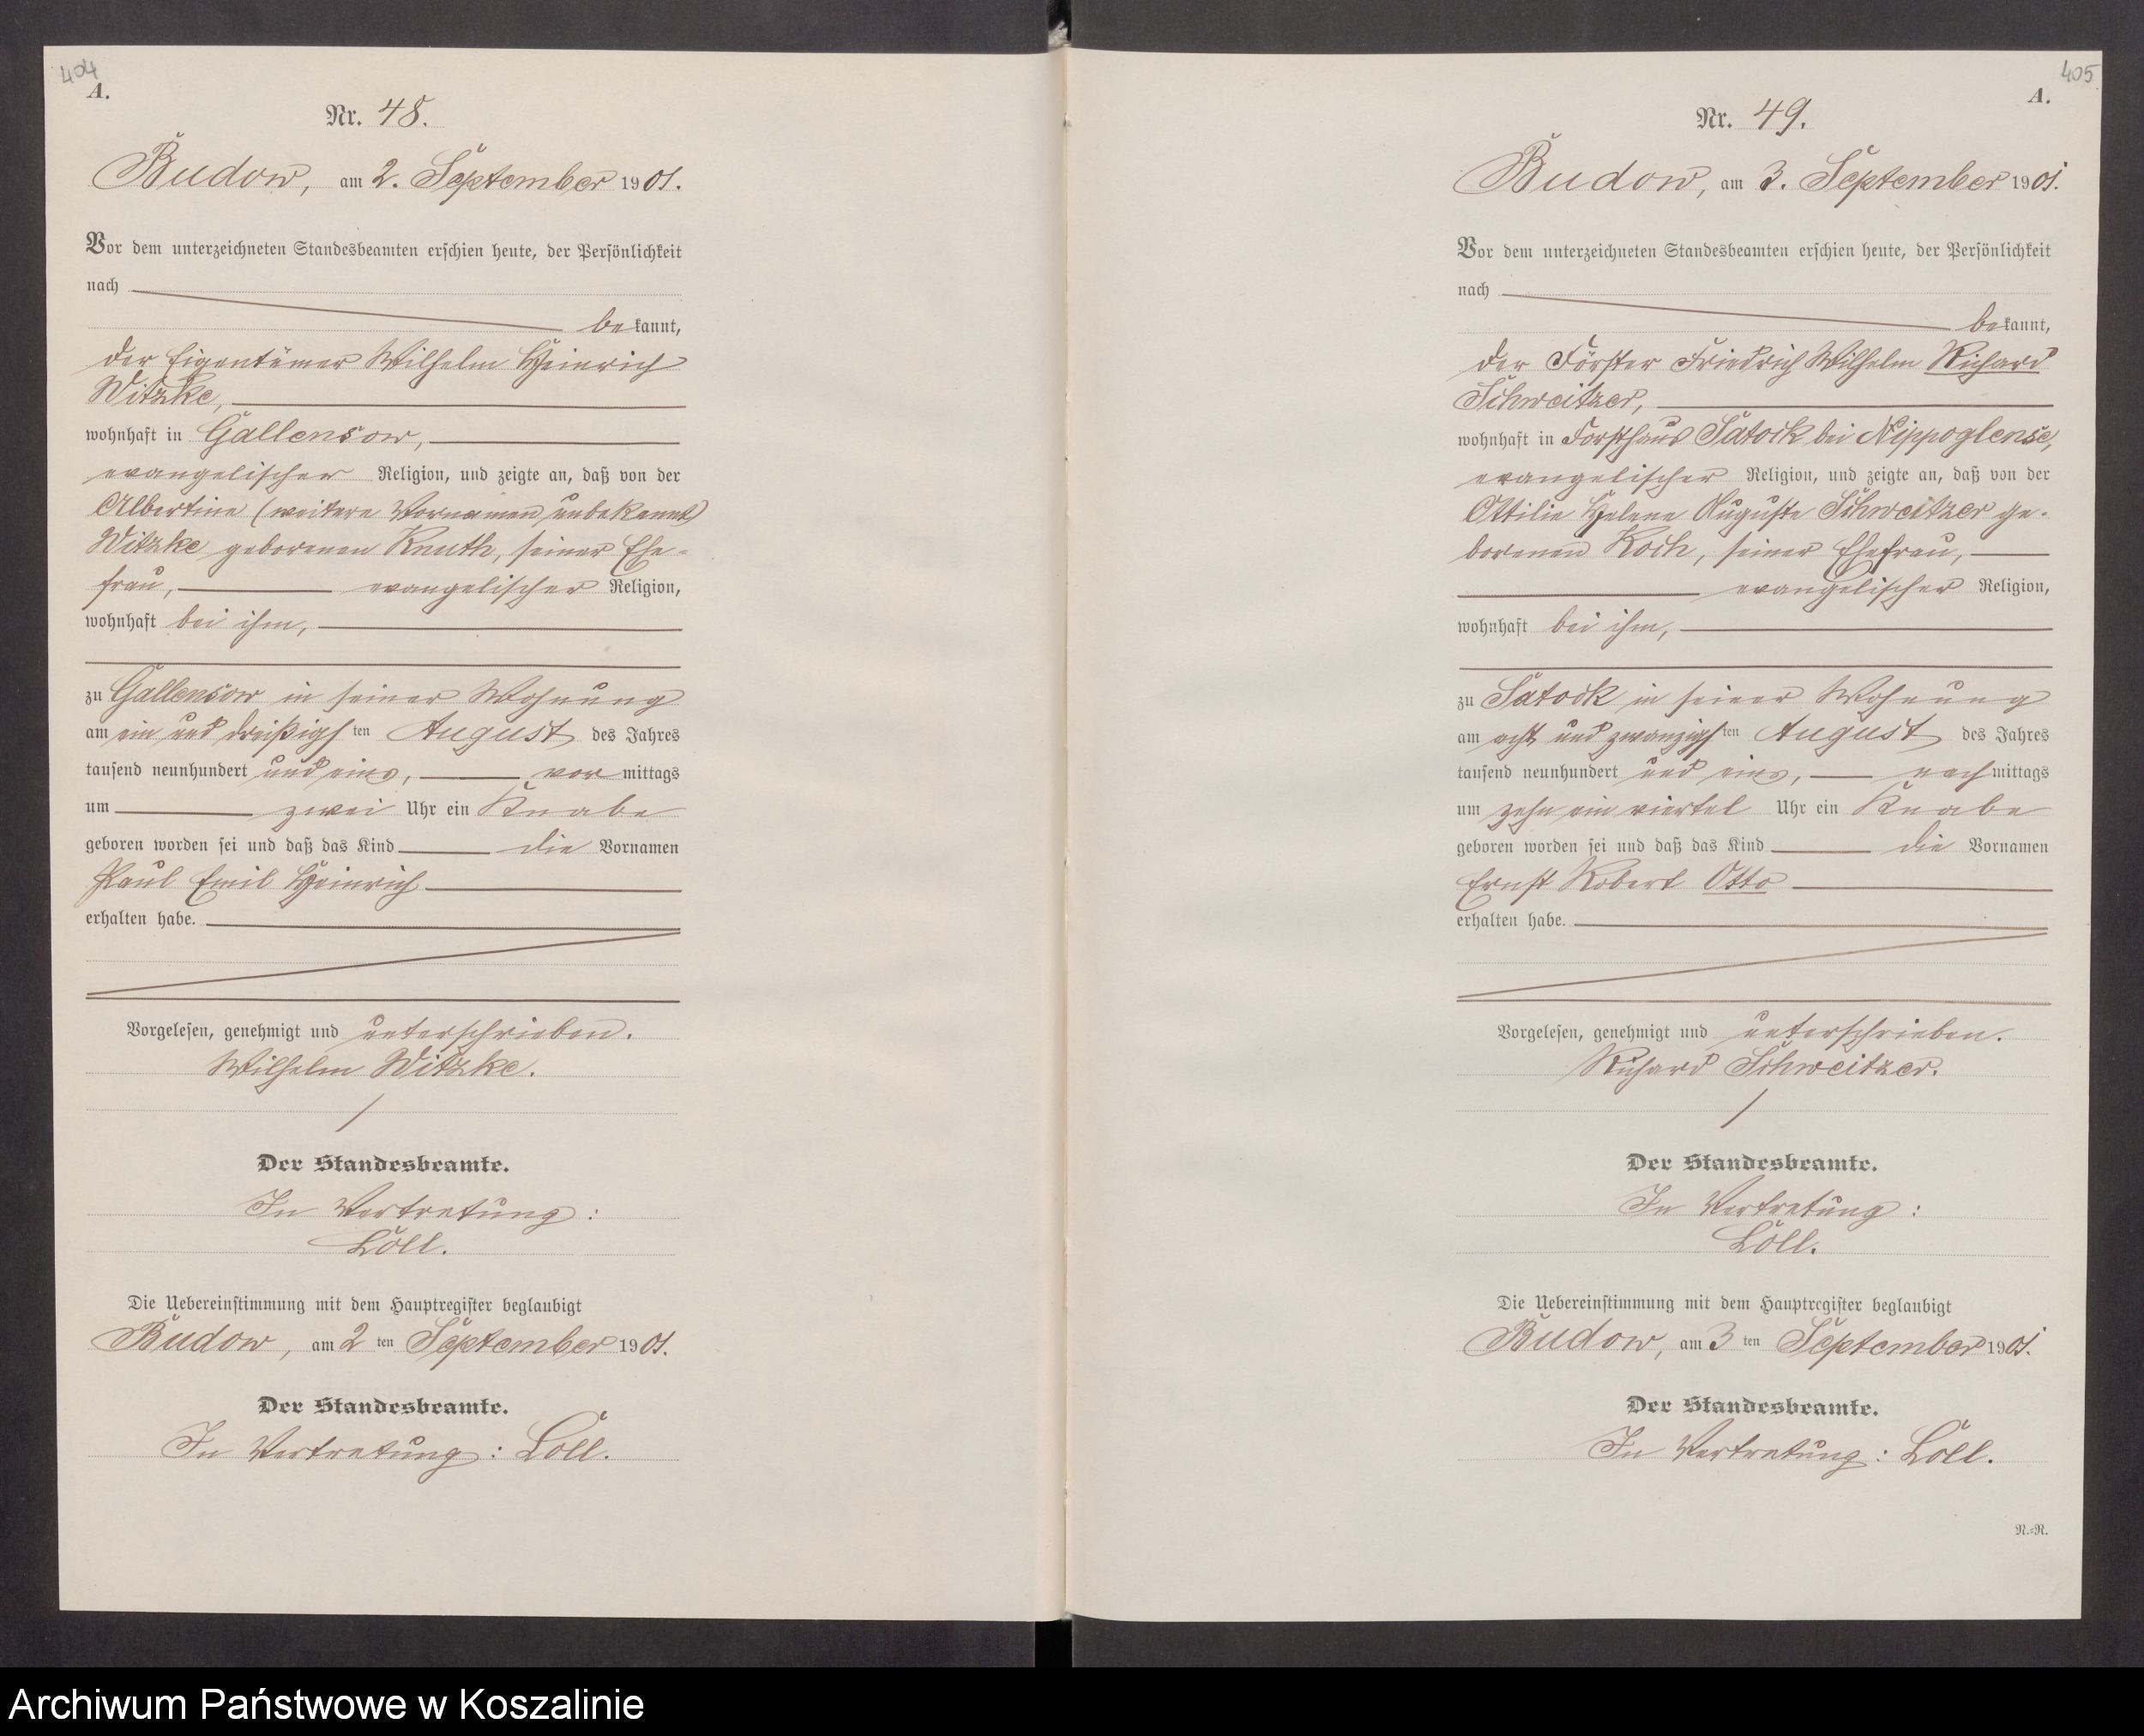 404
A.
Nr. 48.
Budow, am 2. September 1901.
Vor dem unterzeichneten Standesbeamten erschien heute, der Persönlichkeit
nach
bekannt,
der Eigentümer Wilhelm Heinrich
Witzke,
wohnhaft in Gallensow,
evangelischer Religion, und zeigte an, daß von der
Albertine (weitere Vornamen unbekannt)
Witzke geborenen Knuth, seiner Ehe-
frau, evangelischer Religion,
wohnhaft bei ihm,
zu Gallensow in seiner Wohnung
am ein und dreißigsten August des Jahres
tausend neunhundert und eins, vormittags
um zwei Uhr ein Knabe
geboren worden sei und daß das Kind die Vornamen
Paul Emil Heinrich
erhalten habe.
Vorgelesen, genehmigt und unterschrieben.
Wilhelm Witzke.
Der Standesbeamte.
In Vertretung:
Löll.
Die Uebereinstimmung mit dem Hauptregister beglaubigt
Budow, am 2 ten September 1901.
Der Standesbeamte.
In Vertretung: Löll.
405
A.
Nr. 49.
Budow, am 3. September 1901.
Vor dem unterzeichneten Standesbeamten erschien heute, der Persönlichkeit
nach
bekannt,
der Förster Friedrich Wilhelm Richard
Schweitzer,
wohnhaft in Forsthaus Satock bei Nippoglense,
evangelischer Religion, und zeigte an, daß von der
Ottilie Helene Auguste Schweitzer ge-
borenen Koch, seiner Ehefrau,
evangelischer Religion,
wohnhaft bei ihm,
zu Satock in seiner Wohnung
am acht und zwanzigsten August des Jahres
tausend neunhundert und eins, nachmittags
um zehn ein viertel Uhr ein Knabe
geboren worden sei und daß das Kind die Vornamen
Ernst Robert Otto
erhalten habe.
Vorgelesen, genehmigt und unterschrieben.
Richard Schweitzer.
Der Standesbeamte.
In Vertretung:
Löll.
Die Uebereinstimmung mit dem Hauptregister beglaubigt
Budow, am 3 ten September 1901.
Der Standesbeamte.
In Vertretung: Löll.
N.=R.
Archiwum Państwowe w Koszalinie